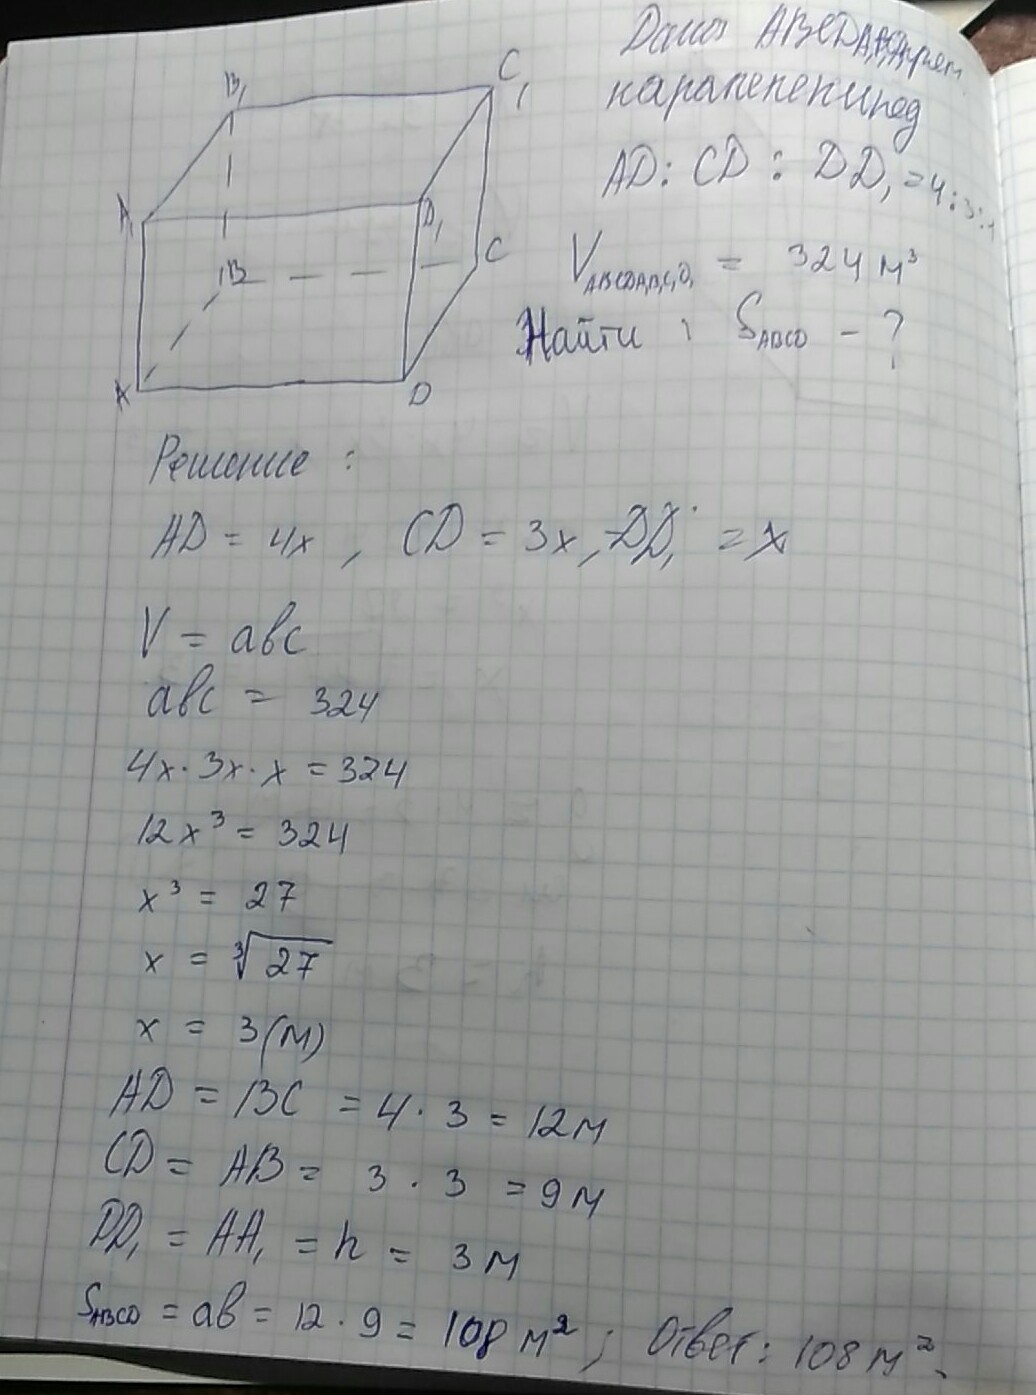 Дано: ABCDA₁B₁C₁D₁ прям.
параллелепипед
AD : CD : DD₁ = 4:3:1
V_ABCDA₁B₁C₁D₁ = 324 м³
Найти : S_ABCD - ?
B₁
C₁
A₁
D₁
B
C
A
D
Решение :
AD = 4x , CD = 3x, DD₁ = x
V = abc
abc = 324
4x · 3x · x = 324
12x³ = 324
x³ = 27
x = ∛27
x = 3(м)
AD = BC = 4 · 3 = 12м
CD = AB = 3 · 3 = 9м
DD₁ = AA₁ = h = 3м
S_ABCD = ab = 12 · 9 = 108 м² ; Ответ: 108 м².